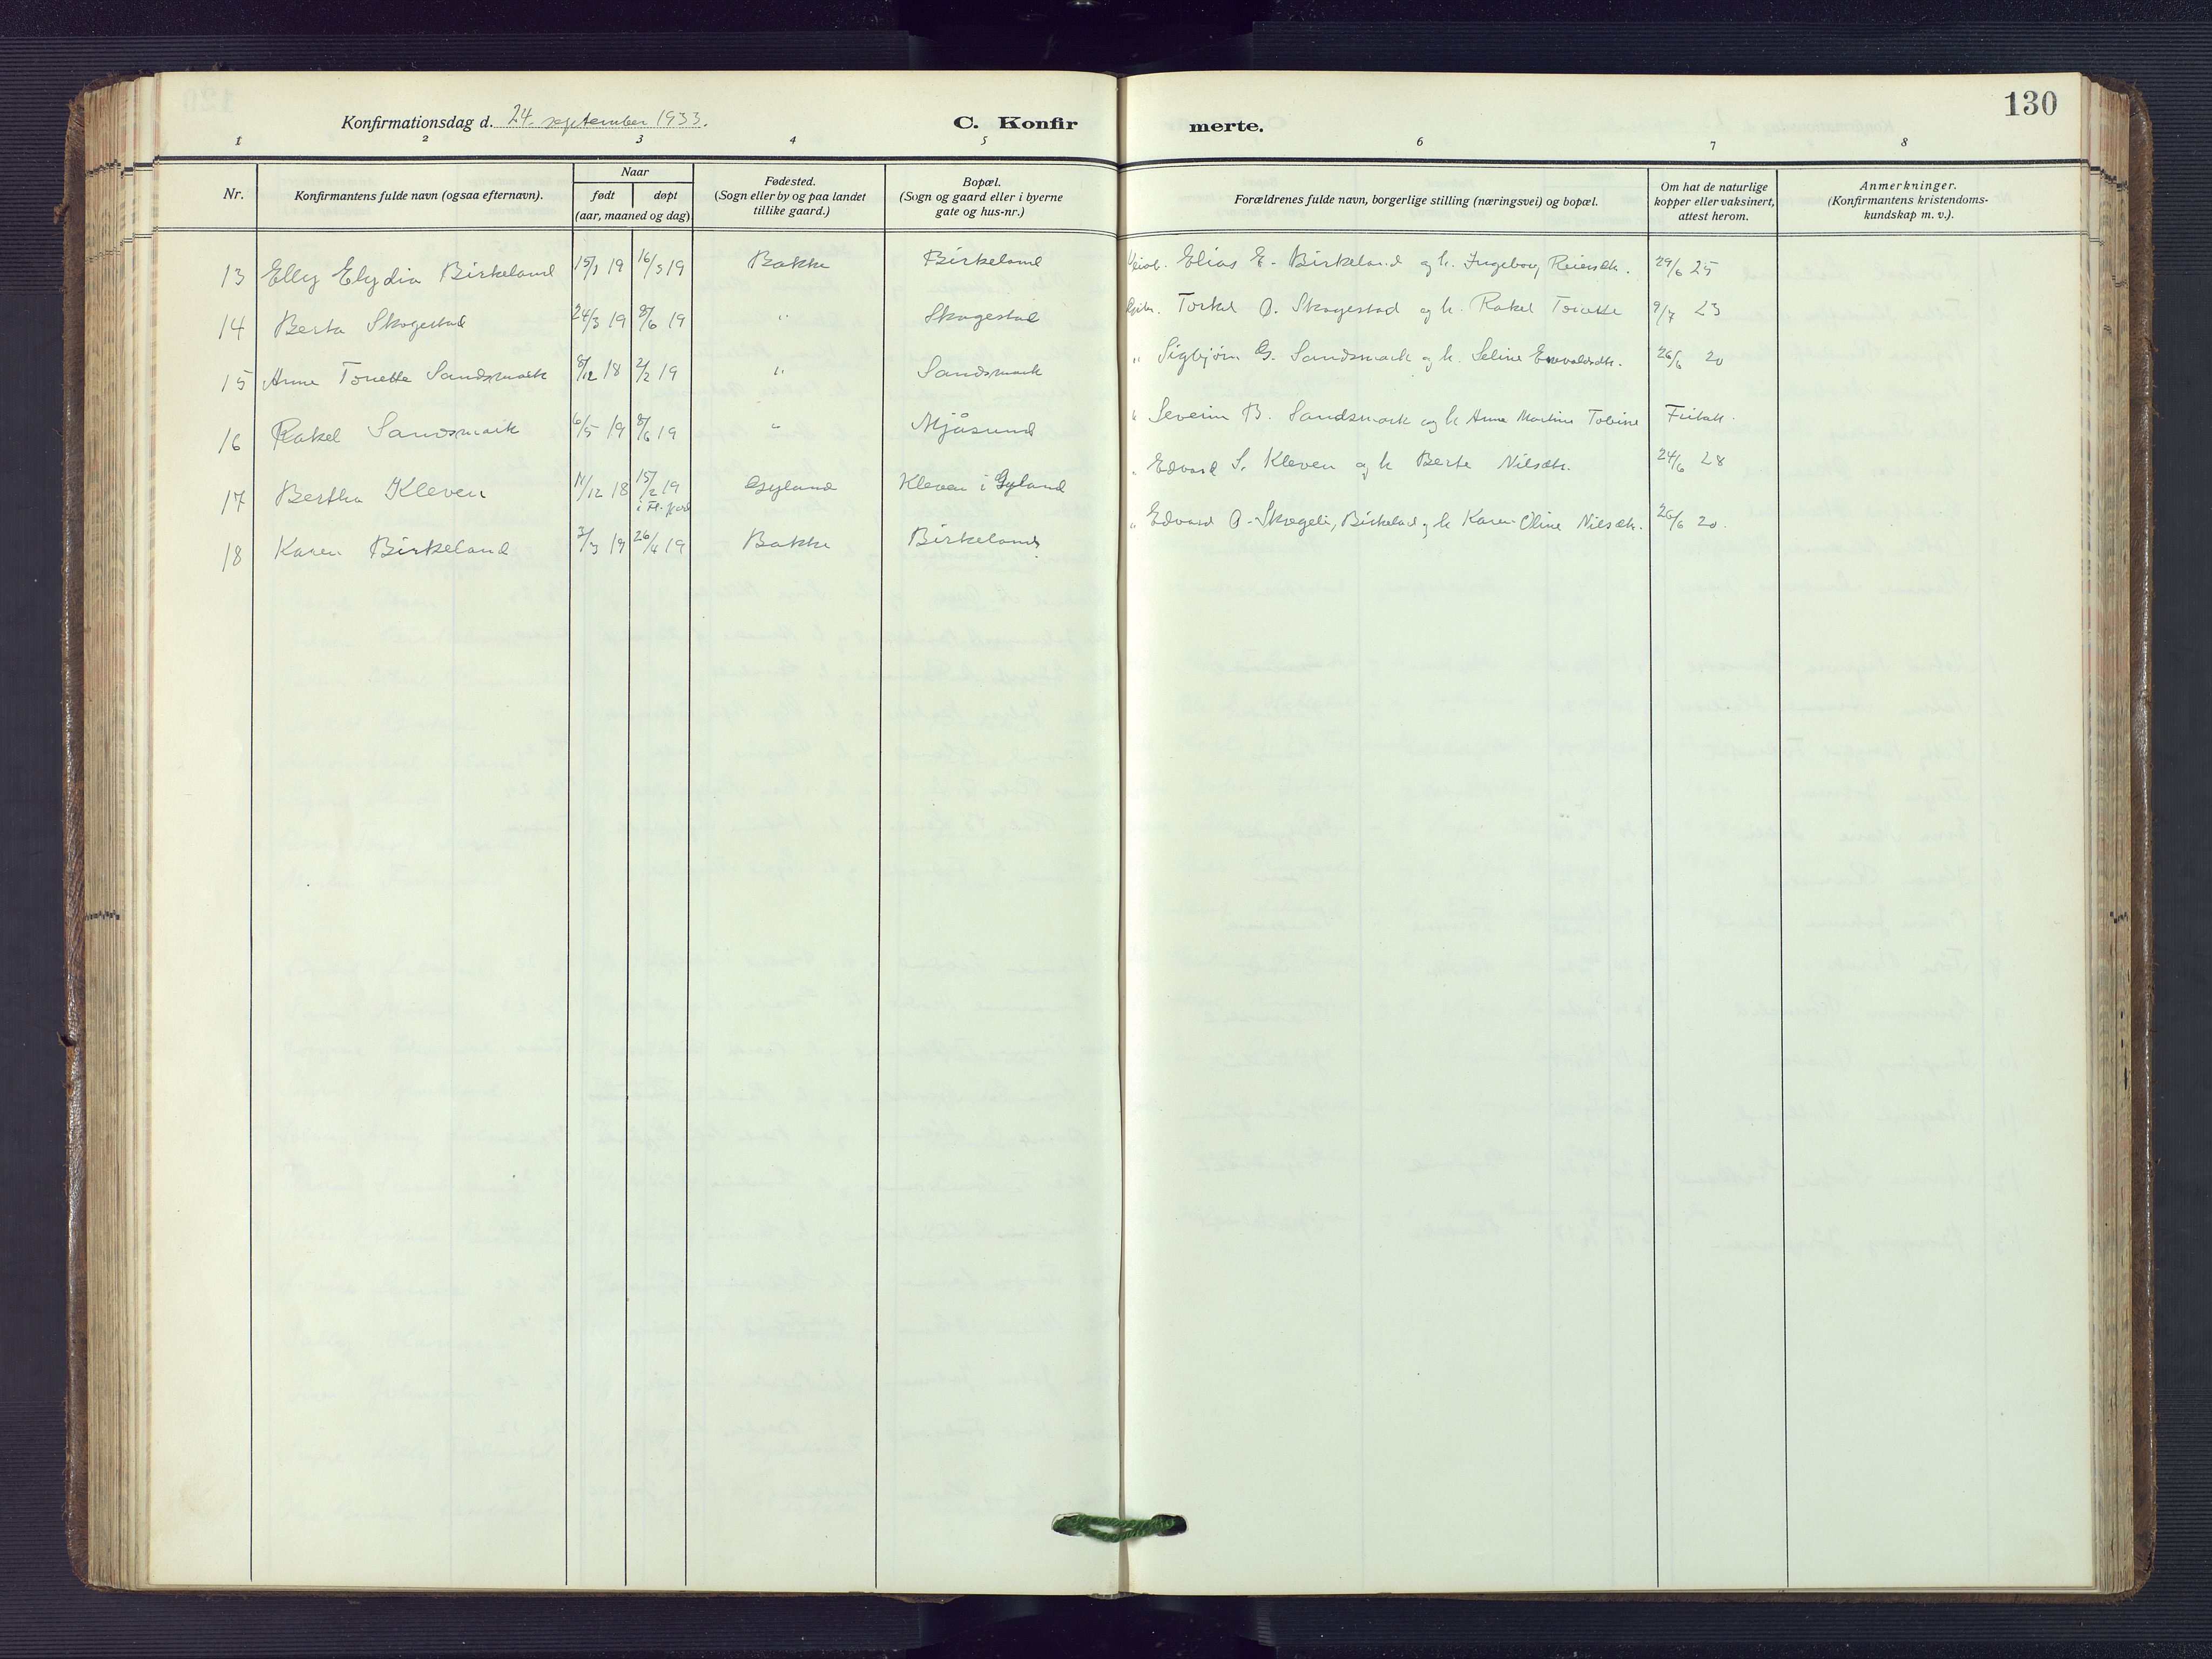 130
Konfirmationsdag d. 24. september 1933.
C. Konfir merte.
1 2 3 4 5 6 7 8
Nr.
Konfirmantens fulde navn (ogsaa efternavn).
Naar
født døpt
(aar, maaned og dag)
Fødested.
(Sogn eller by og paa landet
tillike gaard.)
Bopæl.
(Sogn og gaard eller i byerne
gate og hus-nr.)
Forældrenes fulde navn, borgerlige stilling (næringsvei) og bopæl.
Om hat de naturlige
kopper eller vaksinert,
attest herom.
Anmerkninger.
(Konfirmantens kristendoms-
kundskap m. v.).
13 Elly Elydia Birkeland 19 16/3 19 Bakke Birkeland Elias E. Birkeland og h. Ingeborg Reiersdtr. 29/6 25
14 Berta Skogestad 24/3 19 8/6 19 " Skogestad Torkel O. Skogestad og h. Rakel Tonette 9/7 23
15 Anne Tonette Sandsmark 8/12 18 2/2 19 " Sandsmark " Sigbjørn G. Sandsmark og h. Seline 26/6 20
16 Rakel Sandsmark 6/5 19 8/6 19 " Mjåsund " Severin B. Sandsmark og h Anne Martine Tobine
17 Bertha Kleven 11/12 18 15/2 19 Gyland Kleven i Gyland " Edvard S. Kleven og h Berte Nilsdtr. 24/6 28
18 Karen Birkeland 3/3 19 26/4 19 Bakke Birkeland " Edvard O. Skogeli, Birkeland og h Karen Oline Nilsdtr. 26/6 20.